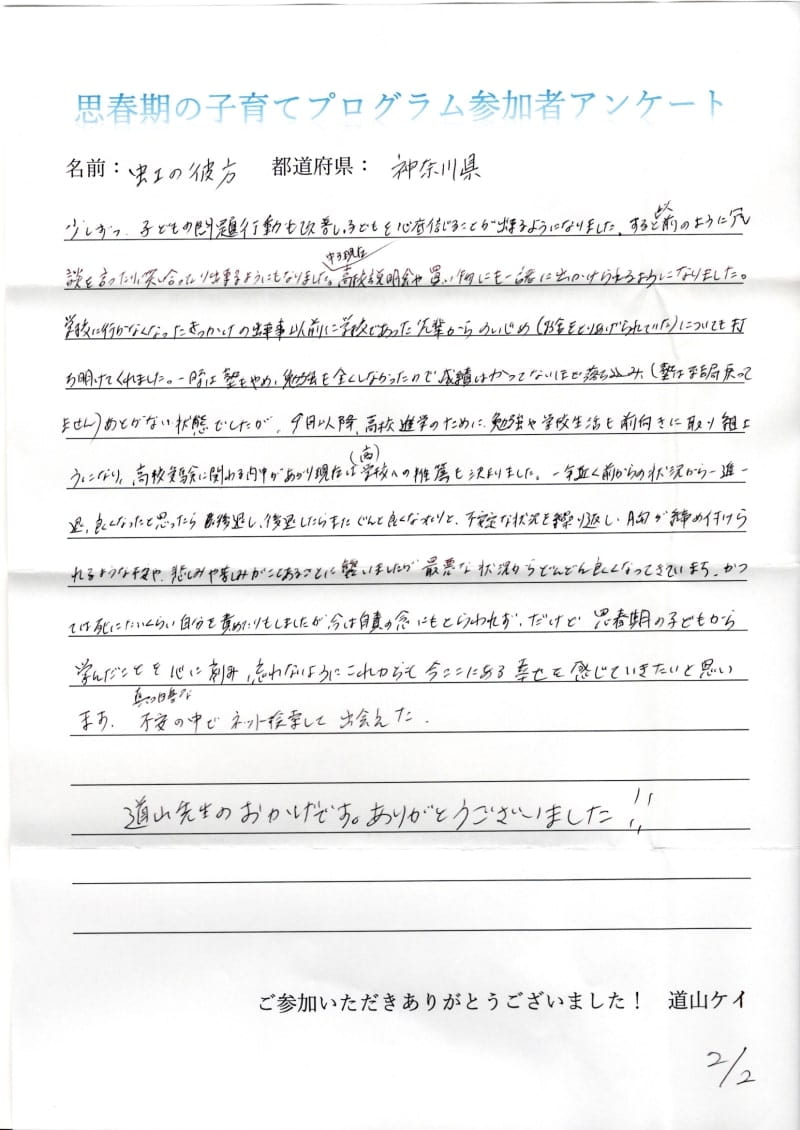 思春期の子育てプログラム参加者アンケート
名前： 虹の彼方 都道府県： 神奈川県
少しずつ、子どもの問題行動も改善し、子どもを心底信じることが出来るようになりました。すると以前のように冗
談を言ったり、笑い合ったり出来るようにもなりました。中3現在 高校説明会や買い物にも一緒に出かけられるようになりました。
学校に行かなくなったきっかけの出来事以前に学校であった先輩からのいじめ（お金をとりあげられていた）についても打
ち明けてくれました。一時は塾もやめ、勉強を全くしなかったので成績はかつてないほど落ち込み、（塾は結局戻って
ません）あとがない状態でしたが、9月以降、高校進学のために、勉強や学校生活も前向きに取り組むよ
うになり、高校受験に関わる内申があがり現在は（高）学校への推薦も決まりました。一年近く前からの状況から一進一
退、良くなったと思ったら 後退し、後退したらまたぐんと良くなったりと、不安定な状況を繰り返し、胸が締め付けら
れるような不安や、悲しみや苦しみがことあるごとに襲いましたが 最悪な状況からどんどん良くなってきています。かつ
ては死にたいくらい自分を責めたりもしましたが今は自責の念にもとらわれず、だけど 思春期の子どもから
学んだことを心に刻み、忘れないようにこれからも 今ここにある 幸せを感じていきたいと思い
ます。真っ暗な不安の中で ネット検索して 出会えた、
道山先生のおかげです。ありがとうございました!!
ご参加いただきありがとうございました！ 道山ケイ
2/2